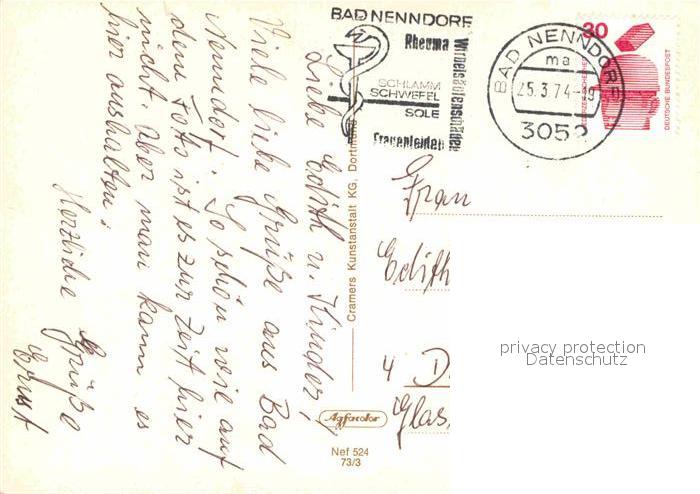 BAD NENNDORF
Rheuma
Wirbelsäulenschäden
SCHLAMM
SCHWEFEL
SOLE
Frauenleiden
BAD NENNDORF
ma
25.3.74-19
3052
30
DEUTSCHE BUNDESPOST
Liebe Edith u. Kinder,
Viele liebe Grüße aus Bad
Nenndorf. So schön wie auf
dem Foto ist es zur Zeit hier
nicht. Aber man kann es
hier aushalten!
Herzliche Grüße
Ernst
Cramers Kunstanstalt KG, Dortmund
Frau
Edith
4 D
Glas
privacy protection
Datenschutz
Agfacolor
Nef 524
73/3